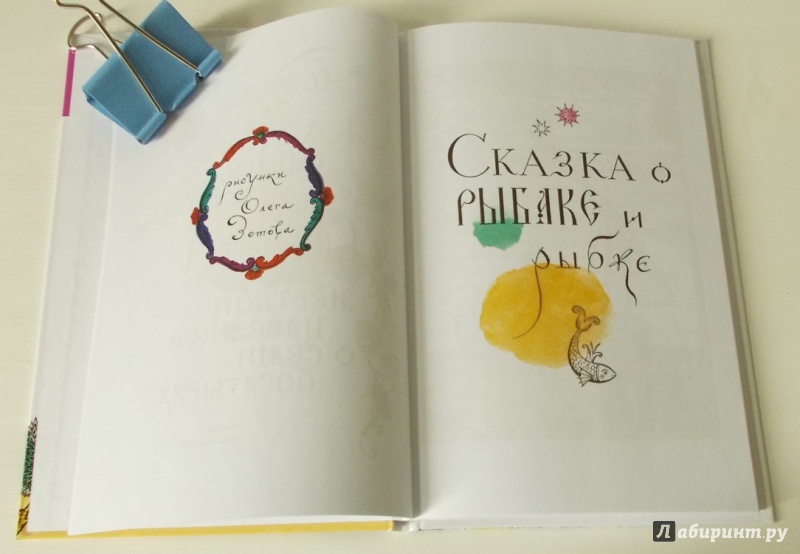 рисунки
Олега
Зотова
Сказка о
рыбаке и
рыбке
Лабиринт.ру